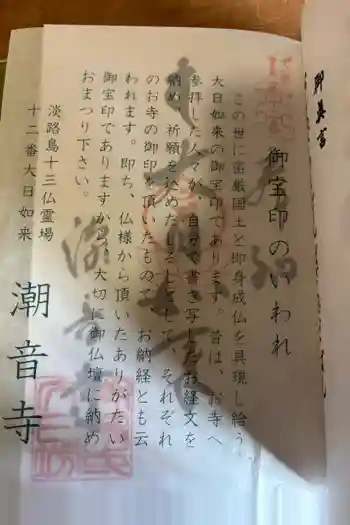 御真言
御宝印のいわれ
この世に密厳国土と即身成仏を具現し給う
大日如来の御宝印であります。昔は、お寺へ
参拝した人々が、自分で書き写したお経文を
納め、祈願をこめたしるしとして、それぞれ
のお寺の御印を頂いたもので、お納経とも云
われます。即ち、仏様から頂いたありがたい
御宝印でありますから、大切に御仏壇に納め
おまつり下さい。
淡路島十三仏霊場
十二番大日如来
潮音寺